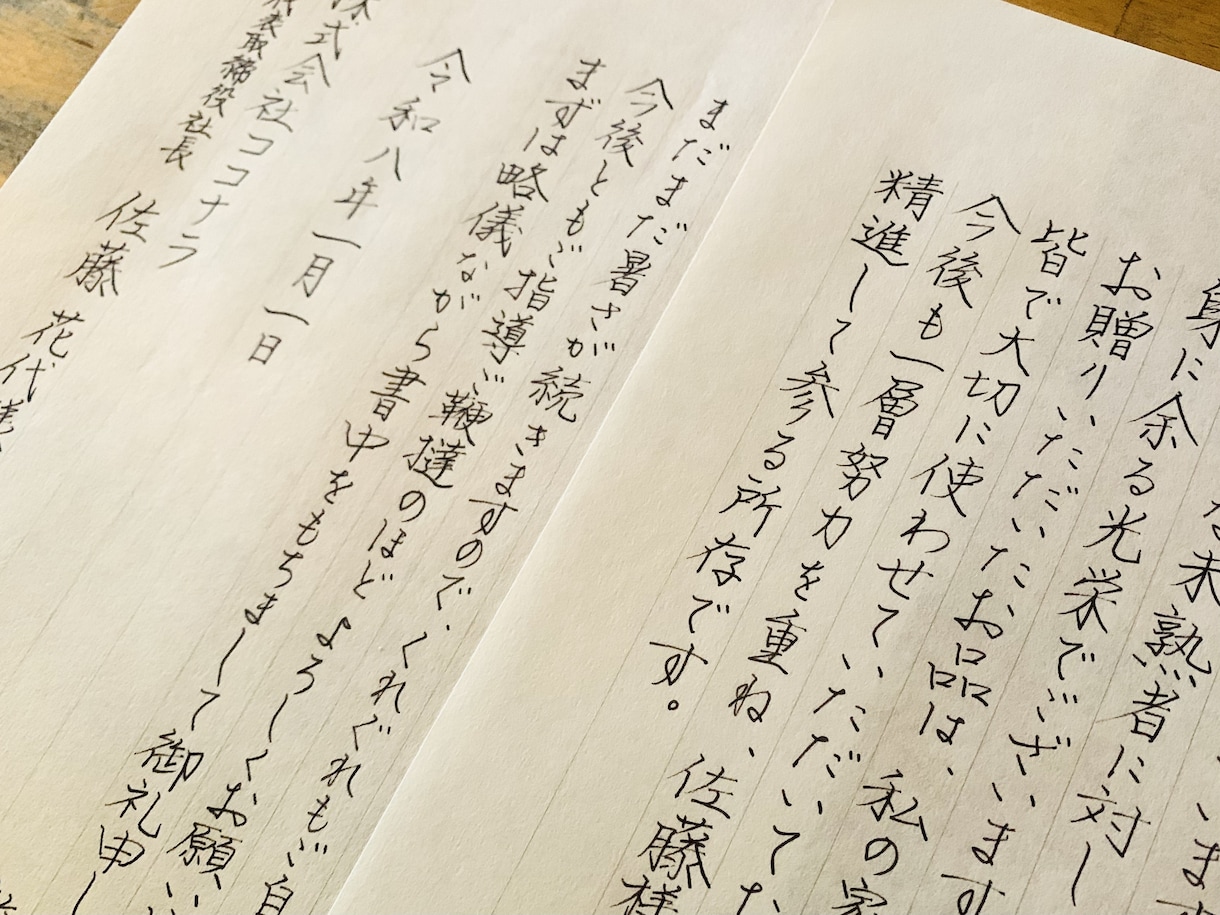 います
な未熟者に対し
身に余る光栄でございます
お贈りいただいたお品は、私の家
皆で大切に使わせていただいてた
今後も一層努力を重ね、佐藤様
精進して参る所存です。
まだまだ暑さが続きますので、くれぐれもご自
今後ともご指導ご鞭撻のほどよろしくお願い
まずは略儀ながら書中をもちまして御礼申し
令和八年一月一日
株式会社ココナラ
代表取締役社長 佐藤 花代様